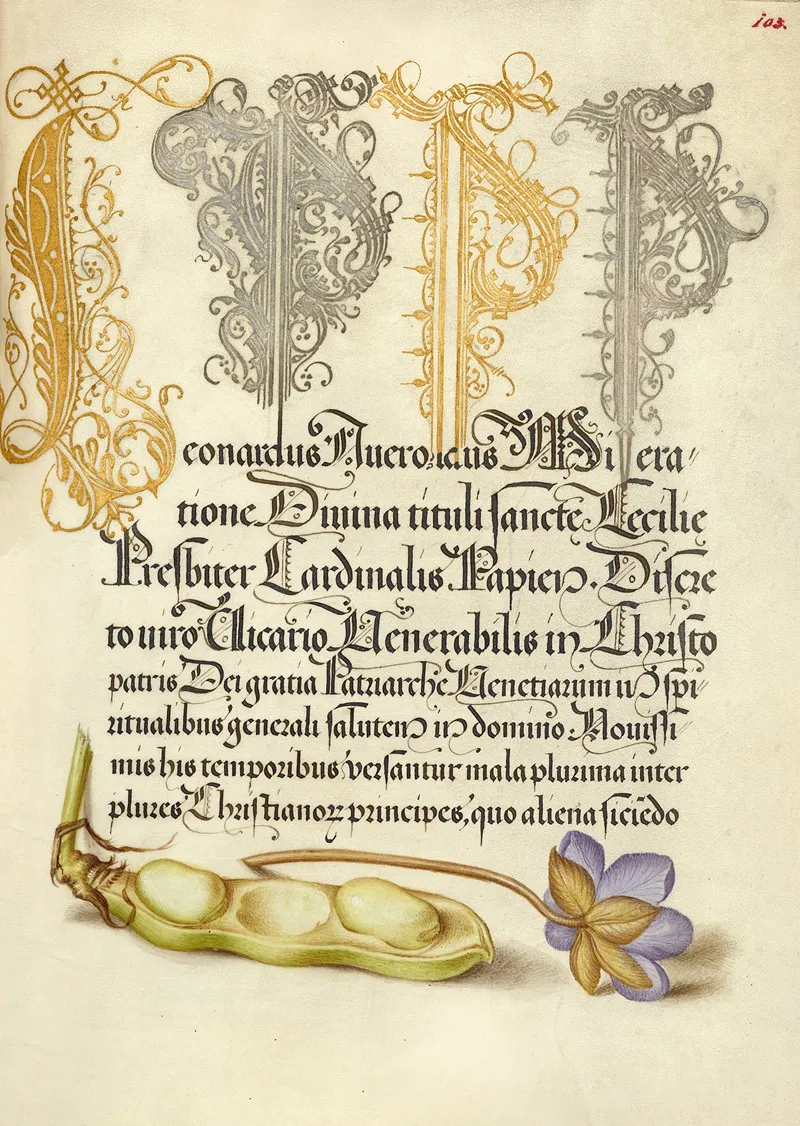 103.
L P P P
eonardus Nueronicus Misera⸗
tione Diuina tituli sancte Cecilie
Presbiter Cardinalis Papien. Discre
to uiro Vicario Venerabilis in Christo
patris Dei gratia Patriarche Venetiarum in spi⸗
ritualibus generali salutem in domino. Nouissi⸗
mis his temporibus versantur mala plurima inter
plures Christianoꝝ principes, quo aliena siciēdo